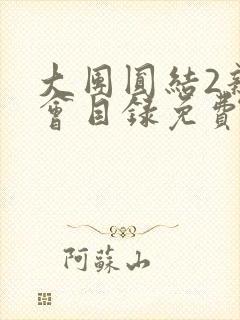 大團圓結2新
會目錄免費
阿蘇山